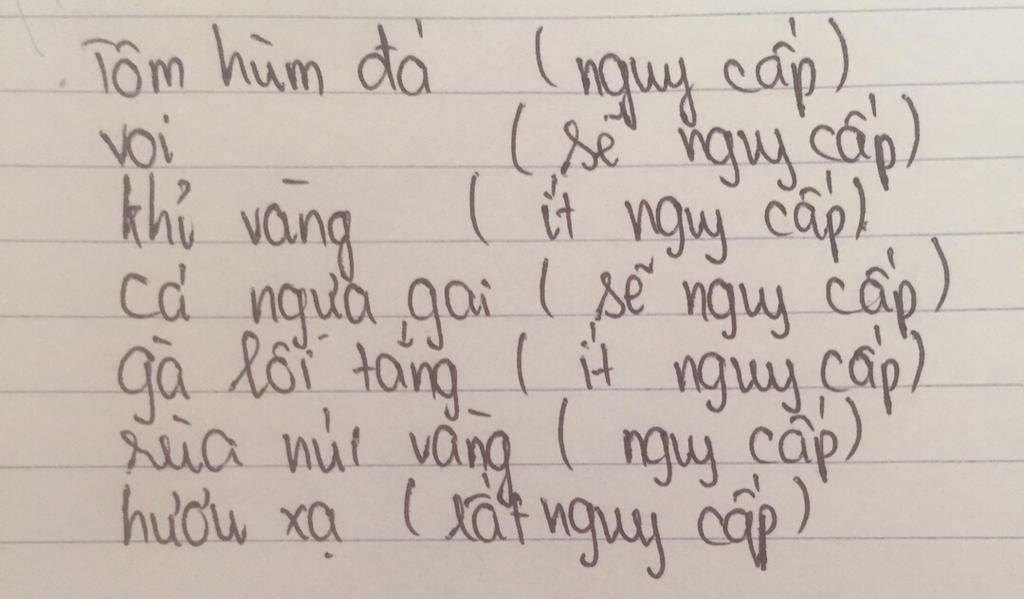 Tôm hùm đá (nguy cấp)
voi (sẽ nguy cấp)
khỉ vàng (ít nguy cấp)
cá ngựa gai (sẽ nguy cấp)
gà lôi tảng (ít nguy cấp)
rùa núi vàng (nguy cấp)
hươu xạ (rất nguy cấp)